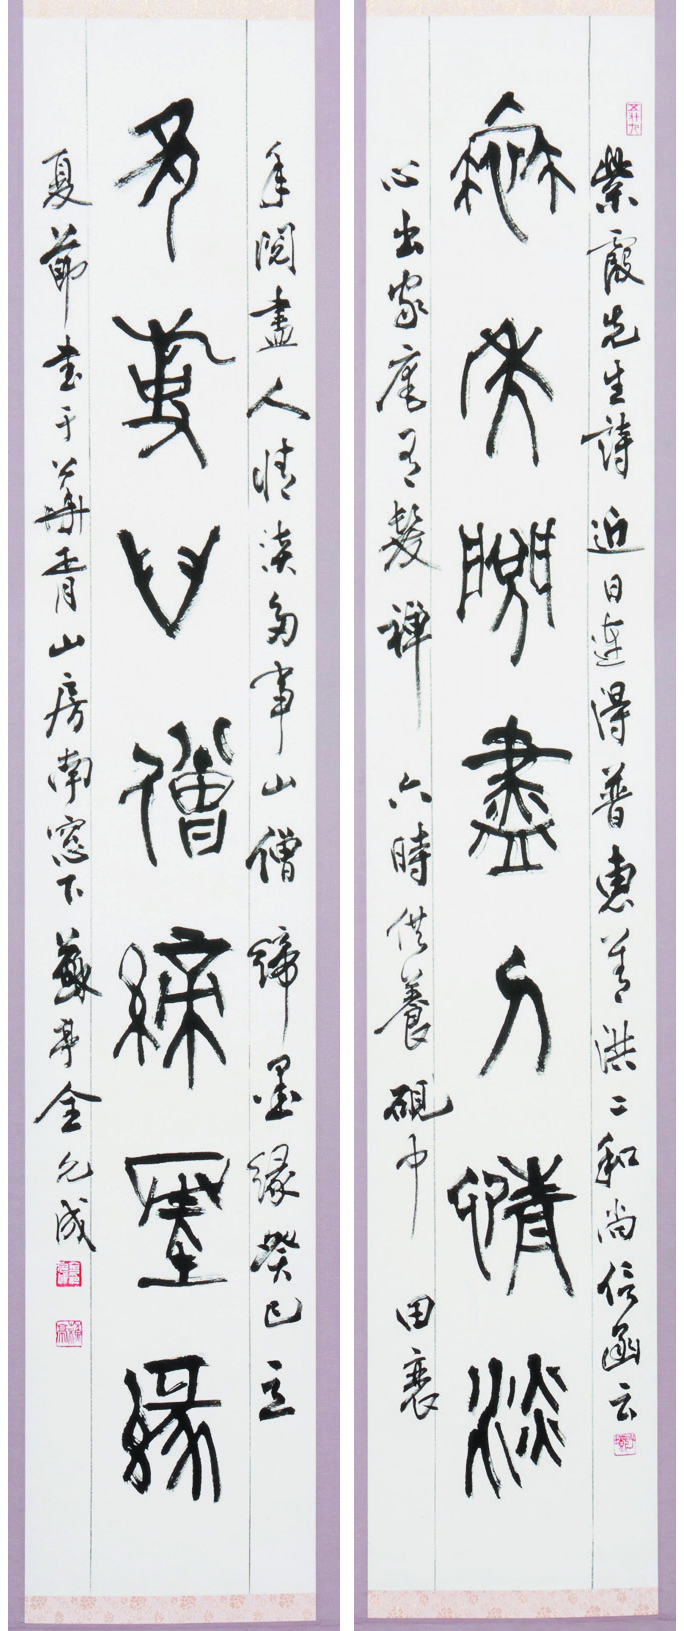 紫霞先生詩 近日連得普惠菁洪二和尚信函云
衰年閱盡人情淡
心出家庵有髮禪 六時供養硯中田 衰
年閱盡人情淡多事山僧締墨緣癸巳立
多事山僧締墨緣
夏節書于華胥山房南窓下蘇亭金允成